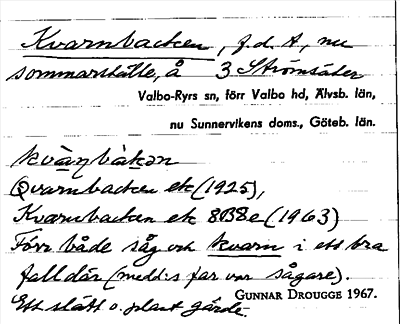 Kvarnbacken, f.d. t, nu
sommarställe, å 3 Strömsäter
Valbo-Ryrs sn, förr Valbo hd, Älvsb. län,
nu Sunnervikens doms., Göteb. län.
kvàɳbàkən
Qvarnbacken ek (1925),
Kvarnbacken ek 8B8e (1963)
Förr både såg och kvarn i ett bra
fall där (medd:s far var sågare).
Ett slätt o. plant gärde.
GUNNAR DROUGGE 1967.